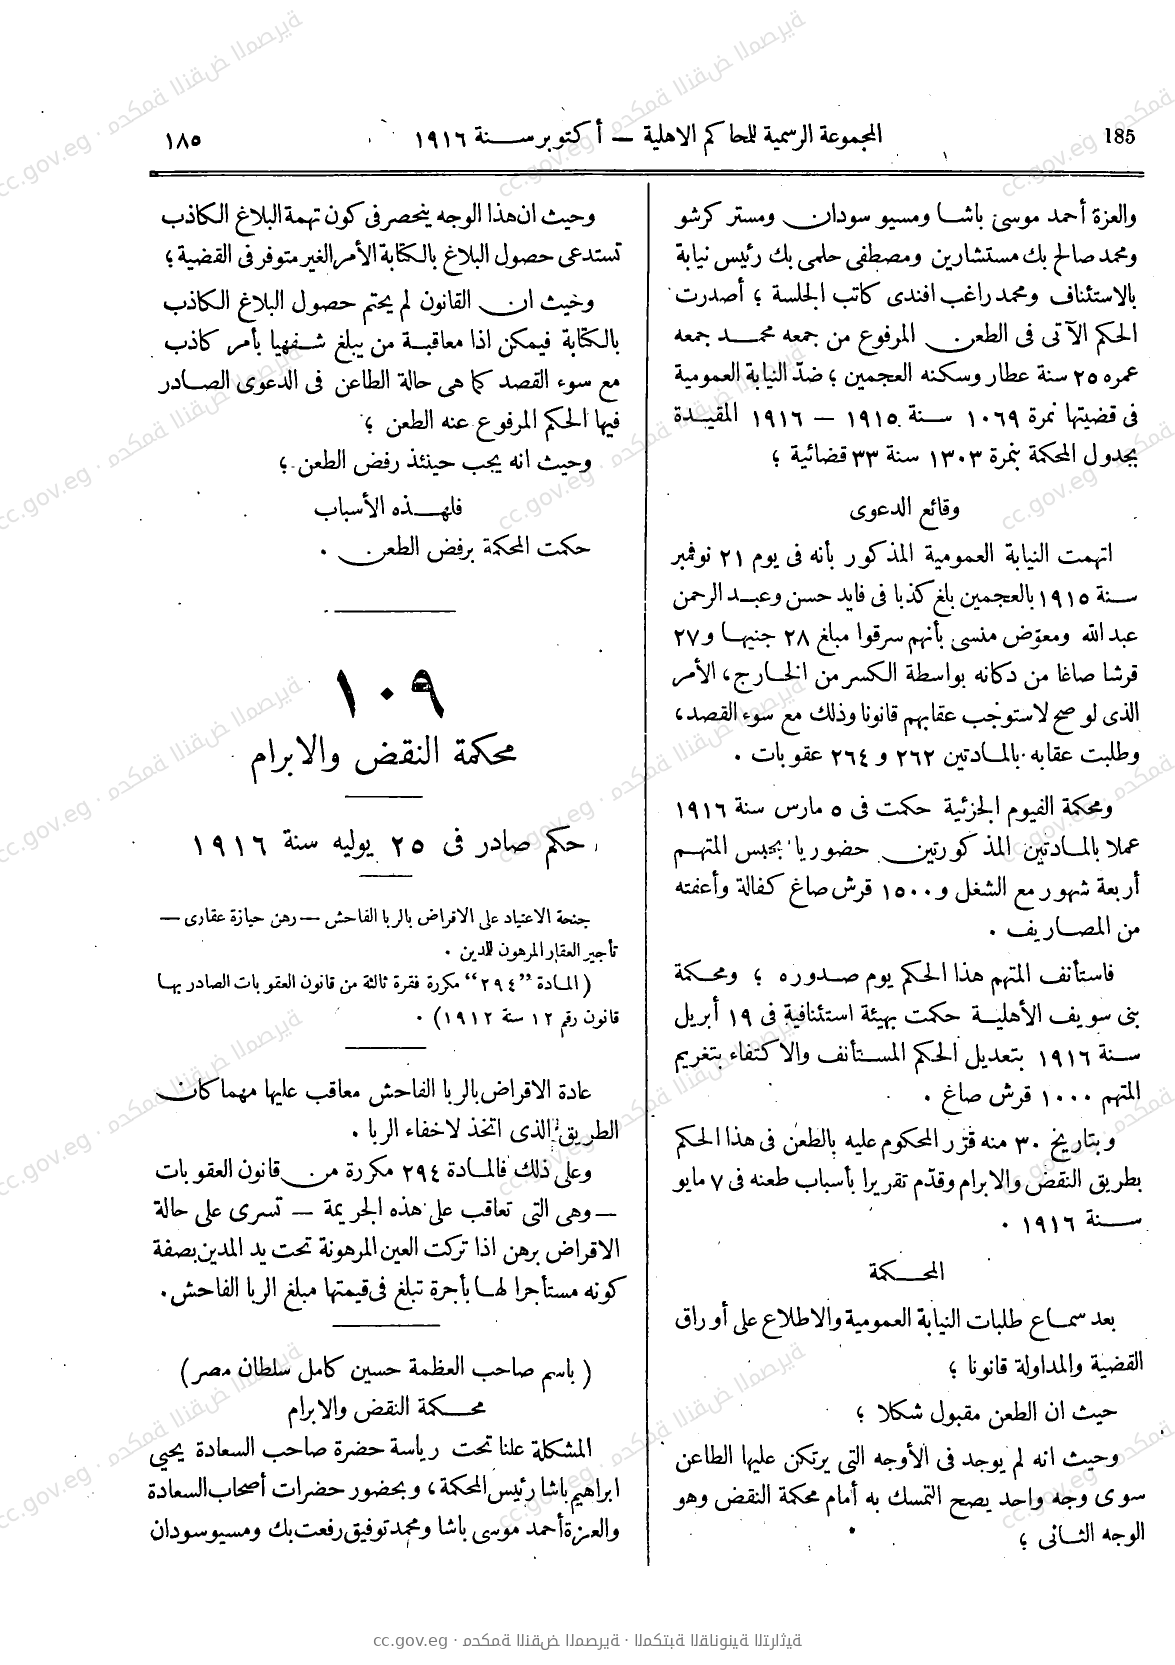 185
المجموعة الرسمية للمحاكم الاهلية — أكتوبر سنة ١٩١٦
١٨٥
والعزة أحمد موسى باشا ومسيو سودان ومستر كرشو
ومحمد صالح بك مستشارين ومصطفى حلمى بك رئيس نيابة
بالاستئناف ومحمد راغب افندى كاتب الجلسة ؛ أصدرت
الحكم الآتى فى الطعن المرفوع من جمعه محمد جمعه
عمره ٢٥ سنة عطار وسكنه العجمين ؛ ضدّ النيابة العمومية
فى قضيتها نمرة ١٠٦٩ سنة ١٩١٥ — ١٩١٦ المقيدة
بجدول المحكمة بنمرة ١٣٠٣ سنة ٣٣ قضائية ؛
وقائع الدعوى
اتهمت النيابة العمومية المذكور بأنه فى يوم ٢١ نوفمبر
سنة ١٩١٥ بالعجمين بلغ كذبا فى فايد حسن وعبد الرحمن
عبد الله ومعوّض منسى بأنهم سرقوا مبلغ ٢٨ جنيها و٢٧
قرشا صاغا من دكانه بواسطة الكسر من الخارج، الأمر
الذى لو صح لاستوجب عقابهم قانونا وذلك مع سوء القصد،
وطلبت عقابه بالمادتين ٢٦٢ و ٢٦٤ عقوبات .
ومحكمة الفيوم الجزئية حكمت فى ٥ مارس سنة ١٩١٦
عملا بالمادتين المذكورتين حضوريا بحبس المتهم
أربعة شهور مع الشغل و١٥٠٠ قرش صاغ كفالة وأعفته
من المصاريف .
فاستأنف المتهم هذا الحكم يوم صدوره ؛ ومحكمة
بنى سويف الأهلية حكمت بهيئة استئنافية فى ١٩ أبريل
سنة ١٩١٦ بتعديل الحكم المستأنف والاكتفاء بتغريم
المتهم ١٠٠٠ قرش صاغ .
وبتاريخ ٣٠ منه قرّر المحكوم عليه بالطعن فى هذا الحكم
بطريق النقض والابرام وقدّم تقريرا بأسباب طعنه فى ٧ مايو
سنة ١٩١٦ .
المحكمة
بعد سماع طلبات النيابة العمومية والاطلاع على أوراق
القضية والمداولة قانونا ؛
حيث ان الطعن مقبول شكلا ؛
وحيث انه لم يوجد فى الأوجه التى يرتكن عليها الطاعن
سوى وجه واحد يصح التمسك به أمام محكمة النقض وهو
الوجه الثانى ؛
وحيث ان هذا الوجه ينحصر فى كون تهمة البلاغ الكاذب
تستدعى حصول البلاغ بالكتابة الأمر الغير متوفر فى القضية ؛
وحيث ان القانون لم يحتم حصول البلاغ الكاذب
بالكتابة فيمكن اذا معاقبة من يبلغ شفهيا بأمر كاذب
مع سوء القصد كما هى حالة الطاعن فى الدعوى الصادر
فيها الحكم المرفوع عنه الطعن ؛
وحيث انه يجب حينئذ رفض الطعن ؛
فلهذه الأسباب
حكمت المحكمة برفض الطعن .
١٠٩
محكمة النقض والابرام
حكم صادر فى ٢٥ يوليه سنة ١٩١٦
جنحة الاعتياد على الاقراض بالربا الفاحش — رهن حيازة عقارى —
تأجير العقار المرهون للدين .
( المادة ”٢٩٤“ مكررة فقرة ثالثة من قانون العقوبات الصادر بها
قانون رقم ١٢ سنة ١٩١٢) .
عادة الاقراض بالربا الفاحش معاقب عليها مهما كان
الطريق الذى اتخذ لاخفاء الربا .
وعلى ذلك فالمادة ٢٩٤ مكررة من قانون العقوبات
— وهى التى تعاقب على هذه الجريمة — تسرى على حالة
الاقراض برهن اذا تركت العين المرهونة تحت يد المدين بصفة
كونه مستأجرا لها بأجرة تبلغ فى قيمتها مبلغ الربا الفاحش.
( باسم صاحب العظمة حسين كامل سلطان مصر )
محكمة النقض والابرام
المشكلة علنا تحت رياسة حضرة صاحب السعادة يحيى
ابراهيم باشا رئيس المحكمة ، وبحضور حضرات أصحاب السعادة
والعزة أحمد موسى باشا ومحمد توفيق رفعت بك ومسيو سودان
cc.gov.eg · محكمة النقض المصرية · المكتبة القانونية التراثية